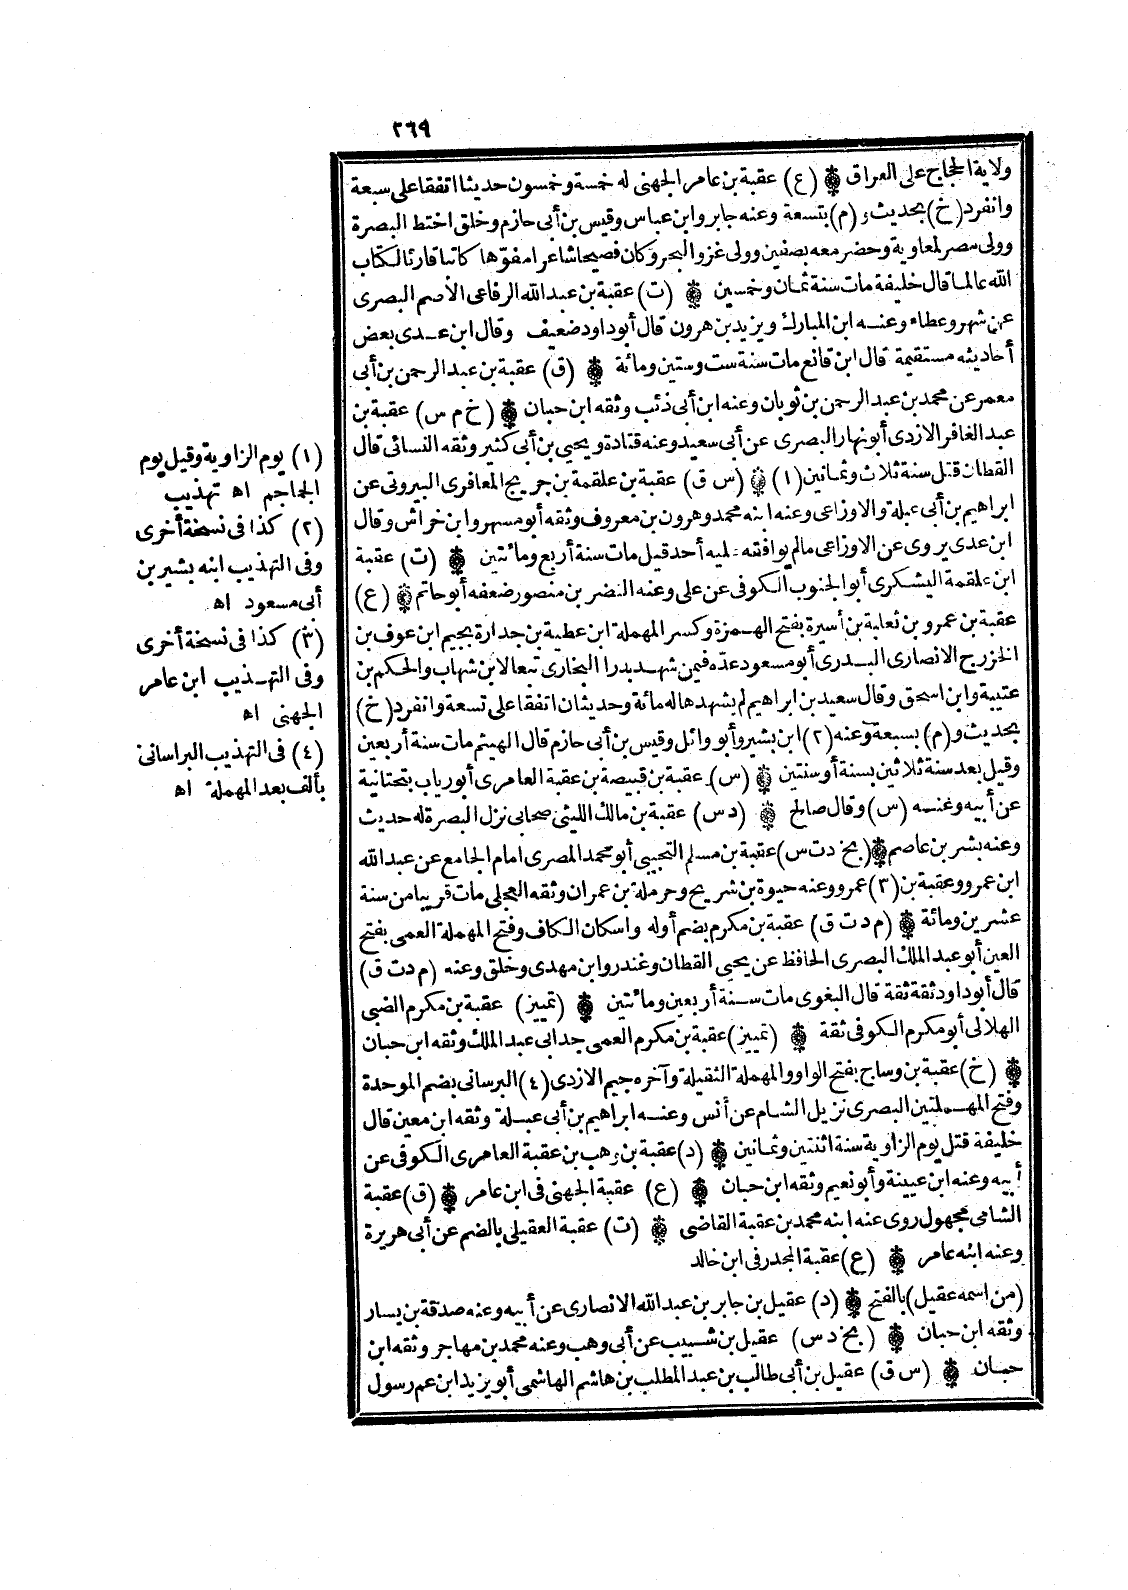 ٢٦٩
ولاية الحجاج على العراق ۞ (ع) عقبة بن عامر الجهنى له خمسة وخمسون حديثا اتفقا على سبعة
وانفرد (خ) بحديث و (م) بتسعة وعنه جابر وابن عباس وقيس بن أبى حازم وخلق اختط البصرة
وولى مصر لمعاوية وحضر معه بصفين وولى غزو البحر وكان فصيحا شاعرا مفوّها كاتبا قارئا لكتاب
الله عالما قال خليفة مات سنة ثمان وخمسين ۞ (ت) عقبة بن عبد الله الرفاعى الأصم البصرى
عن شهر وعطاء وعنه ابن المبارك ويزيد بن هرون قال أبو داود ضعيف وقال ابن عدى بعض
أحاديثه مستقيمة قال ابن قانع مات سنة ست وستين ومائة ۞ (ق) عقبة بن عبد الرحمن بن أبى
معمر عن محمد بن عبد الرحمن بن ثوبان وعنه ابن أبى ذئب وثقه ابن حبان ۞ (خ م س) عقبة بن
عبد الغافر الازدى أبو نهار البصرى عن أبى سعيد وعنه قتادة ويحيى بن أبى كثير وثقه النسائى قال
القطان قتل سنة ثلاث وثمانين (١) ۞ (س ق) عقبة بن علقمة بن جريج المعافرى البيروتى عن
ابراهيم بن أبى عبلة والاوزاعى وعنه ابنه محمد وهرون بن معروف وثقه أبو مسهر وابن خراش وقال
ابن عدى يروى عن الاوزاعى مالم يوافقه عليه أحد قيل مات سنة أربع ومائتين ۞ (ت) عقبة
ابن علقمة اليشكرى أبو الجنوب الكوفى عن على وعنه النضر بن منصور ضعفه أبو حاتم ۞ (ع)
عقبة بن عمرو بن ثعلبة بن أسيرة بفتح الهمزة وكسر المهملة ابن عطية بن جدارة بجيم ابن عوف بن
الخزرج الانصارى البدرى أبو مسعود عدّه فيمن شهد بدرا البخارى تبعا لابن شهاب والحكم بن
عتيبة وابن اسحق وقال سعيد بن ابراهيم لم يشهدها له مائة وحديثان اتفقا على تسعة وانفرد (خ)
بحديث و (م) بسبعة وعنه (٢) ابن بشير وأبو وائل وقيس بن أبى حازم قال الهيثم مات سنة أربعين
وقيل بعد سنة ثلاثين بسنة أو سنتين ۞ (س) عقبة بن قبيصة بن عقبة العامرى أبو رياب بتحتانية
عن أبيه وعنه (س) وقال صالح ۞ (د س) عقبة بن مالك الليثى صحابى نزل البصرة له حديث
وعنه بشر بن عاصم ۞ (بخ د ت س) عقبة بن مسلم التجيبى أبو محمد المصرى امام الجامع عن عبد الله
ابن عمرو وعقبة بن (٣) عمرو وعنه حيوة بن شريح وحرملة بن عمران وثقه العجلى مات قريبا من سنة
عشرين ومائة ۞ (م د ت ق) عقبة بن مكرم بضم أوله واسكان الكاف وفتح المهملة العمى بفتح
العين أبو عبد الملك البصرى الحافظ عن يحيى القطان وغندر وابن مهدى وخلق وعنه (م د ت ق)
قال أبو داود ثقة ثقة قال البغوى مات سنة أربعين ومائتين ۞ (تمييز) عقبة بن مكرم الضبى
الهلالى أبو مكرم الكوفى ثقة ۞ (تمييز) عقبة بن مكرم العمى جد أبى عبد الملك وثقه ابن حبان
۞ (خ) عقبة بن وساج بفتح الواو والمهملة الثقيلة وآخره جيم الازدى (٤) البرسانى بضم الموحدة
وفتح المهملتين البصرى نزيل الشام عن أنس وعنه ابراهيم بن أبى عبلة وثقه ابن معين قال
خليفة قتل يوم الزاوية سنة اثنتين وثمانين ۞ (د) عقبة بن وهب بن عقبة العامرى الكوفى عن
أبيه وعنه ابن عيينة وأبو نعيم وثقه ابن حبان ۞ (ع) عقبة الجهنى فى ابن عامر ۞ (ق) عقبة
الشامى مجهول روى عنه ابنه محمد بن عقبة القاضى ۞ (ت) عقبة العقيلى بالضم عن أبى هريرة
وعنه ابنه عامر ۞ (ع) عقبة المجدر فى ابن خالد
(من اسمه عقيل) بالفتح ۞ (د) عقيل بن جابر بن عبد الله الانصارى عن أبيه وعنه صدقة بن يسار
وثقه ابن حبان ۞ (بخ د س) عقيل بن شبيب عن أبى وهب وعنه محمد بن مهاجر وثقه ابن
حبان ۞ (س ق) عقيل بن أبى طالب بن عبد المطلب بن هاشم الهاشمى أبو يزيد ابن عم رسول
(١) يوم الزاوية وقيل يوم
الجماجم اه تهذيب
(٢) كذا فى نسخة أخرى
وفى التهذيب ابنه بشير بن
أبى مسعود اه
(٣) كذا فى نسخة أخرى
وفى التهذيب ابن عامر
الجهنى اه
(٤) فى التهذيب البراسانى
بألف بعد المهملة اه